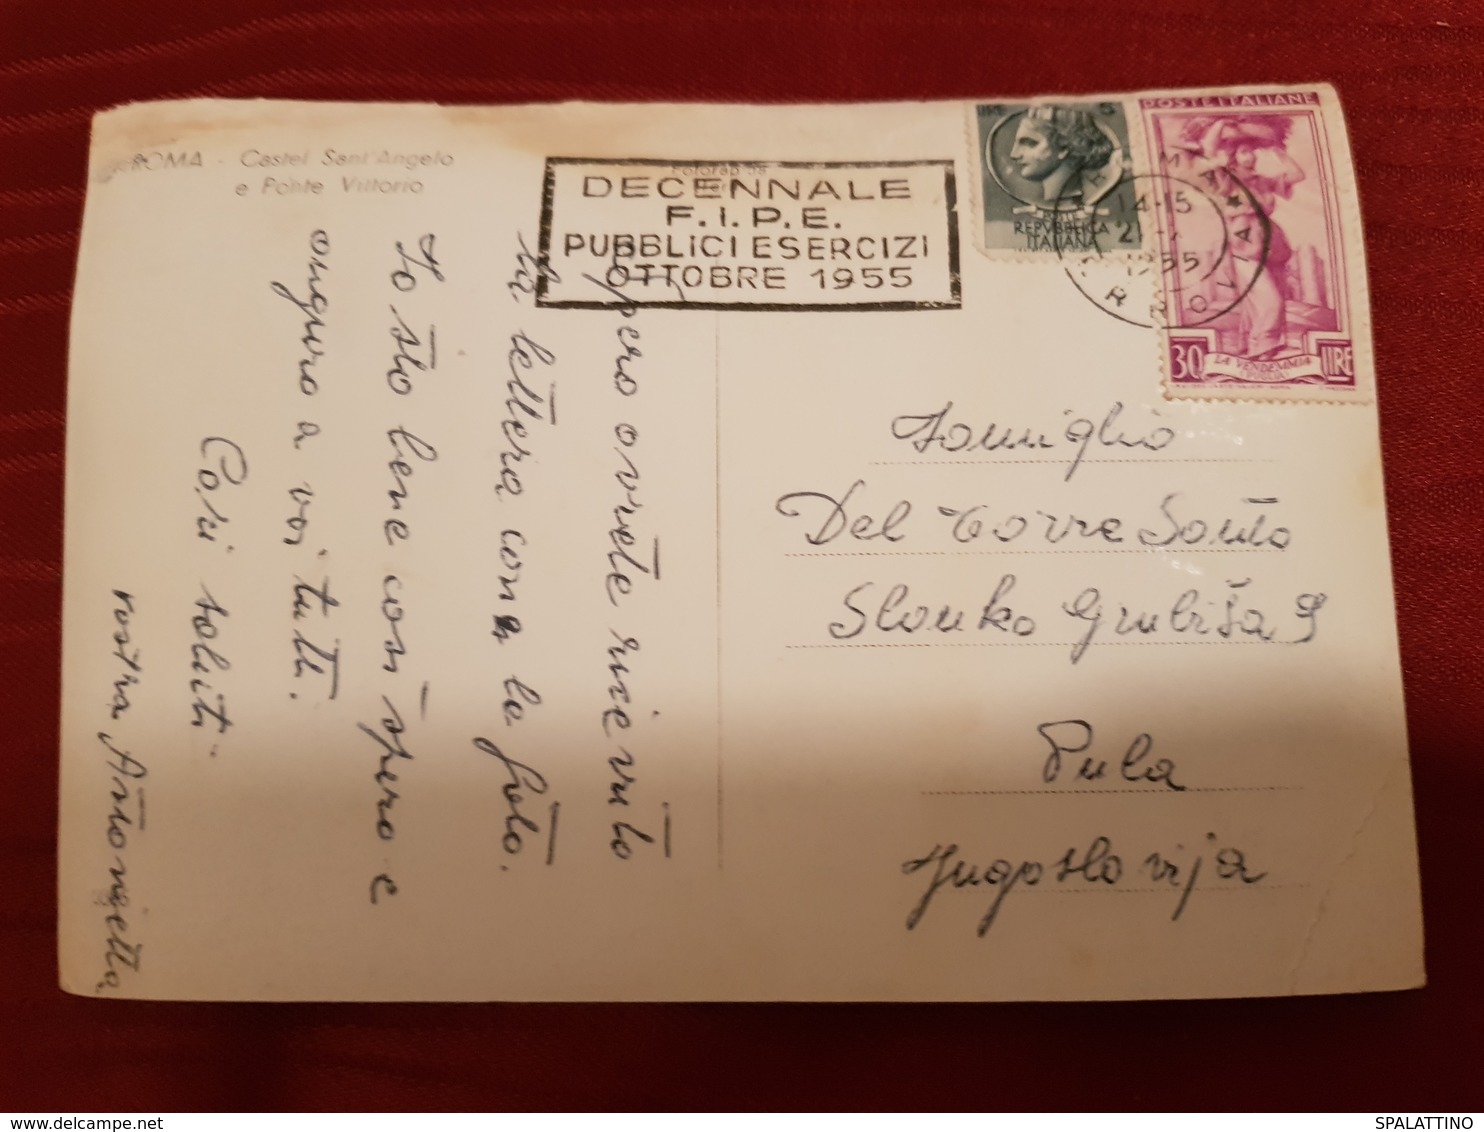 ROMA - Castel Sant'Angelo
e Ponte Vittorio
DECENNALE
F.I.P.E.
PUBBLICI ESERCIZI
OTTOBRE 1955
LIRE 5
REPVBBLICA
ITALIANA
POSTE ITALIANE
30 LIRE
LA VENDEMMIA
ROMA
14-15
1955
Spero avrete ricevuto
la lettera con la foto.
Io sto bene così spero e
auguro a voi tutti.
Cari saluti
vostra Antonietta
Famiglia
Del Torre Santo
Slavko Grubiša 9
Pula
Jugoslavija
SPALATTINO
delcampe.net